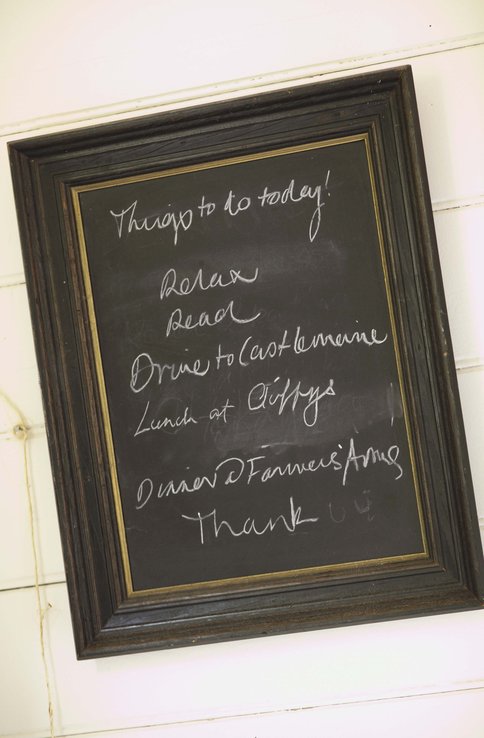 Things to do today!
Relax
Read
Drive to Castlemaine
Lunch at Cliffys
Dinner @ Farmers' Arms
Thank